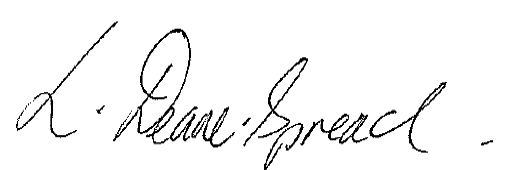 L. Deane-Spread.